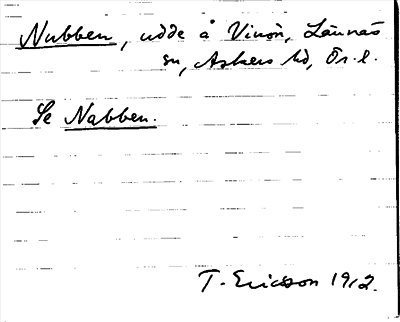 Nubben, udde å Vinön, Lännäs
sn, Askers hd, Ör. l.
Se Nabben.
T. Ericsson 1912.